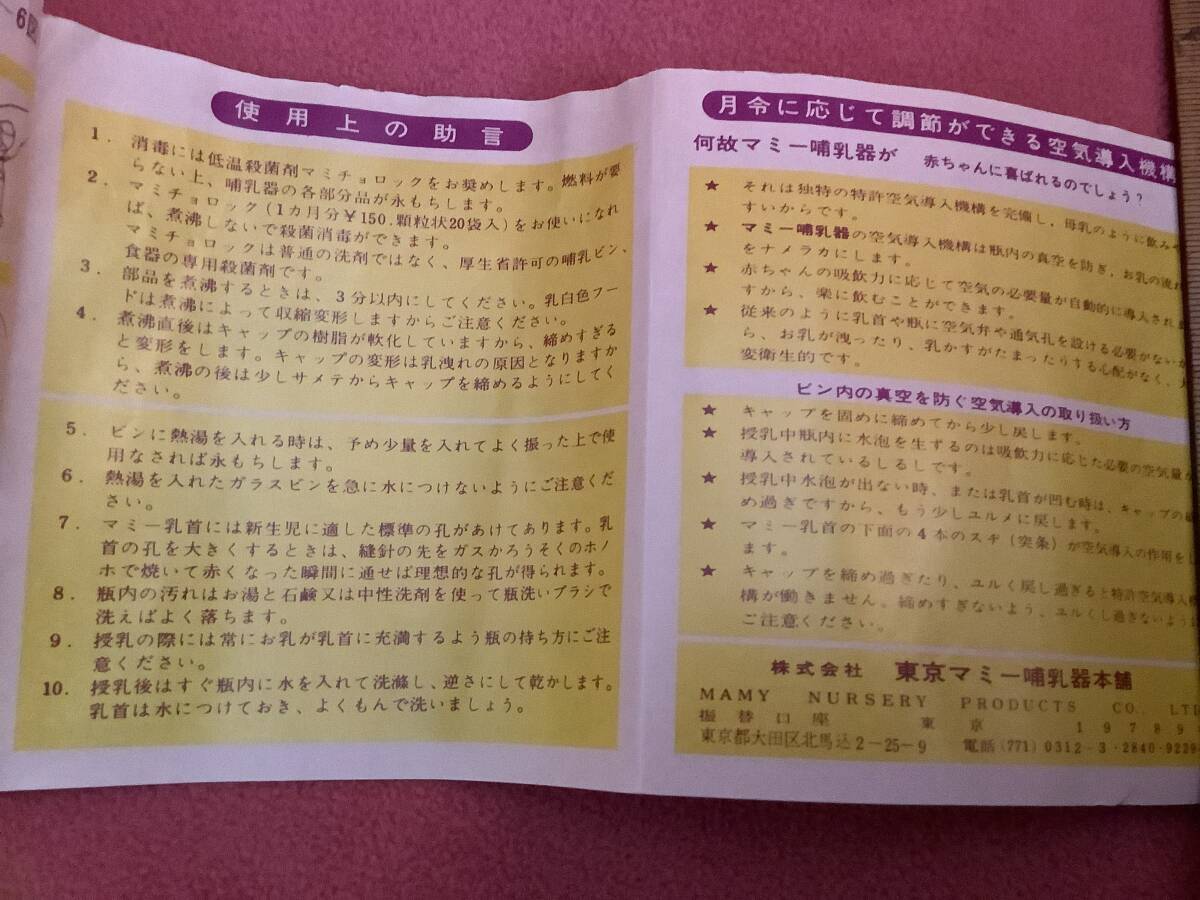 6図
使用上の助言
1. 消毒には低温殺菌剤マミチョロックをお奨めします。燃料が要
らない上、哺乳器の各部分品が永もちします。
2. マミチョロック(1カ月分¥150.顆粒状20袋入)をお使いになれ
ば、煮沸しないで殺菌消毒ができます。
マミチョロックは普通の洗剤ではなく、厚生省許可の哺乳ビン、
食器の専用殺菌剤です。
3. 部品を煮沸するときは、3分以内にしてください。乳白色フー
ドは煮沸によって収縮変形しますからご注意ください。
4. 煮沸直後はキャップの樹脂が軟化していますから、締めすぎる
と変形をします。キャップの変形は乳洩れの原因となりますか
ら、煮沸の後は少しサメテからキャップを締めるようにしてく
ださい。
5. ビンに熱湯を入れる時は、予め少量を入れてよく振った上で使
用なされば永もちします。
6. 熱湯を入れたガラスビンを急に水につけないようにご注意くだ
さい。
7. マミー乳首には新生児に適した標準の孔があけてあります。乳
首の孔を大きくするときは、縫針の先をガスかろうそくのホノ
ホで焼いて赤くなった瞬間に通せば理想的な孔が得られます。
8. 瓶内の汚れはお湯と石鹸又は中性洗剤を使って瓶洗いブラシで
洗えばよく落ちます。
9. 授乳の際には常にお乳が乳首に充満するよう瓶の持ち方にご注
意ください。
10. 授乳後はすぐ瓶内に水を入れて洗滌し、逆さにして乾かします。
乳首は水につけておき、よくもんで洗いましょう。
月令に応じて調節ができる空気導入機構
何故マミー哺乳器が 赤ちゃんに喜ばれるのでしょう?
★ それは独特の特許空気導入機構を完備し、母乳のように飲みや
すいからです。
★ マミー哺乳器の空気導入機構は瓶内の真空を防ぎ、お乳の流れ
をナメラカにします。
★ 赤ちゃんの吸飲力に応じて空気の必要量が自動的に導入され
すから、楽に飲むことができます。
★ 従来のように乳首や瓶に空気弁や通気孔を設ける必要がない
ら、お乳が洩ったり、乳かすがたまったりする心配がなく、大
変衛生的です。
ビン内の真空を防ぐ空気導入の取り扱い方
★ キャップを固めに締めてから少し戻します。
★ 授乳中瓶内に水泡を生ずるのは吸飲力に応じた必要の空気量が
導入されているしるしです。
★ 授乳中水泡が出ない時、または乳首が凹む時は、キャップの
め過ぎですから、もう少しユルメに戻します。
★ マミー乳首の下面の4本のスヂ(突条)が空気導入の作用を
ます。
★ キャップを締め過ぎたり、ユルく戻し過ぎると特許空気導入機
構が働きません。締めすぎないよう、ユルくし過ぎないように
ご注意ください。
株式会社 東京マミー哺乳器本舗
MAMY NURSERY PRODUCTS CO., LTD
振替口座 東京 19789
東京都大田区北馬込2-25-9 電話(771)0312-3・2840・9229